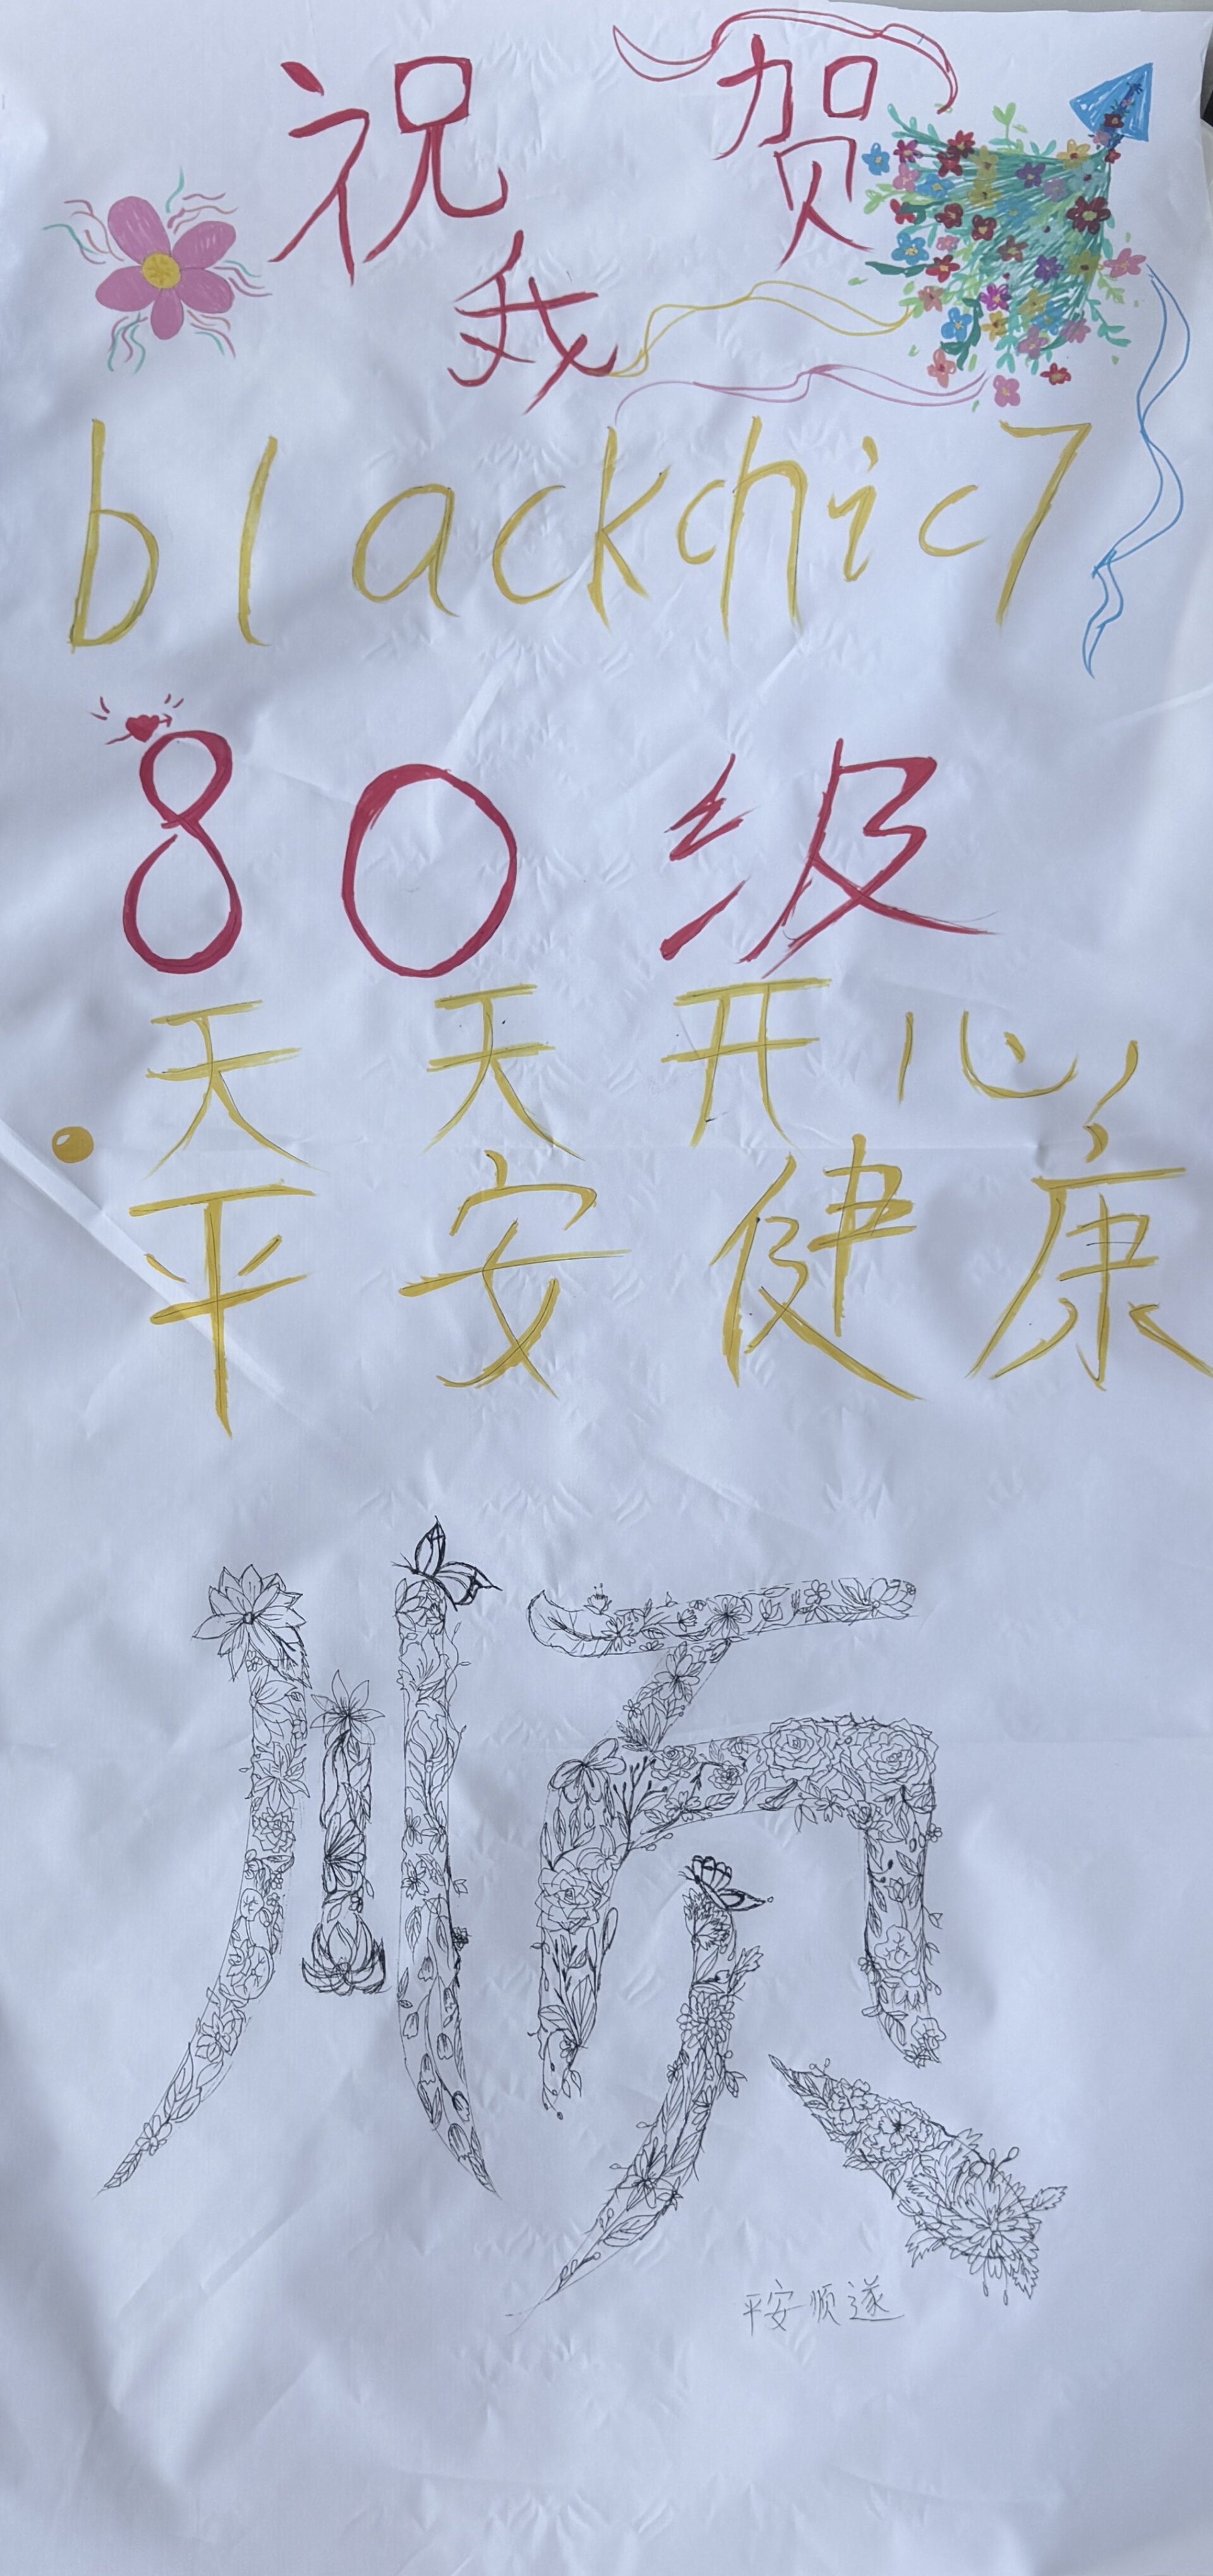 祝贺
我
blackchic7
80级
天天开心，
平安健康
顺
平安顺遂